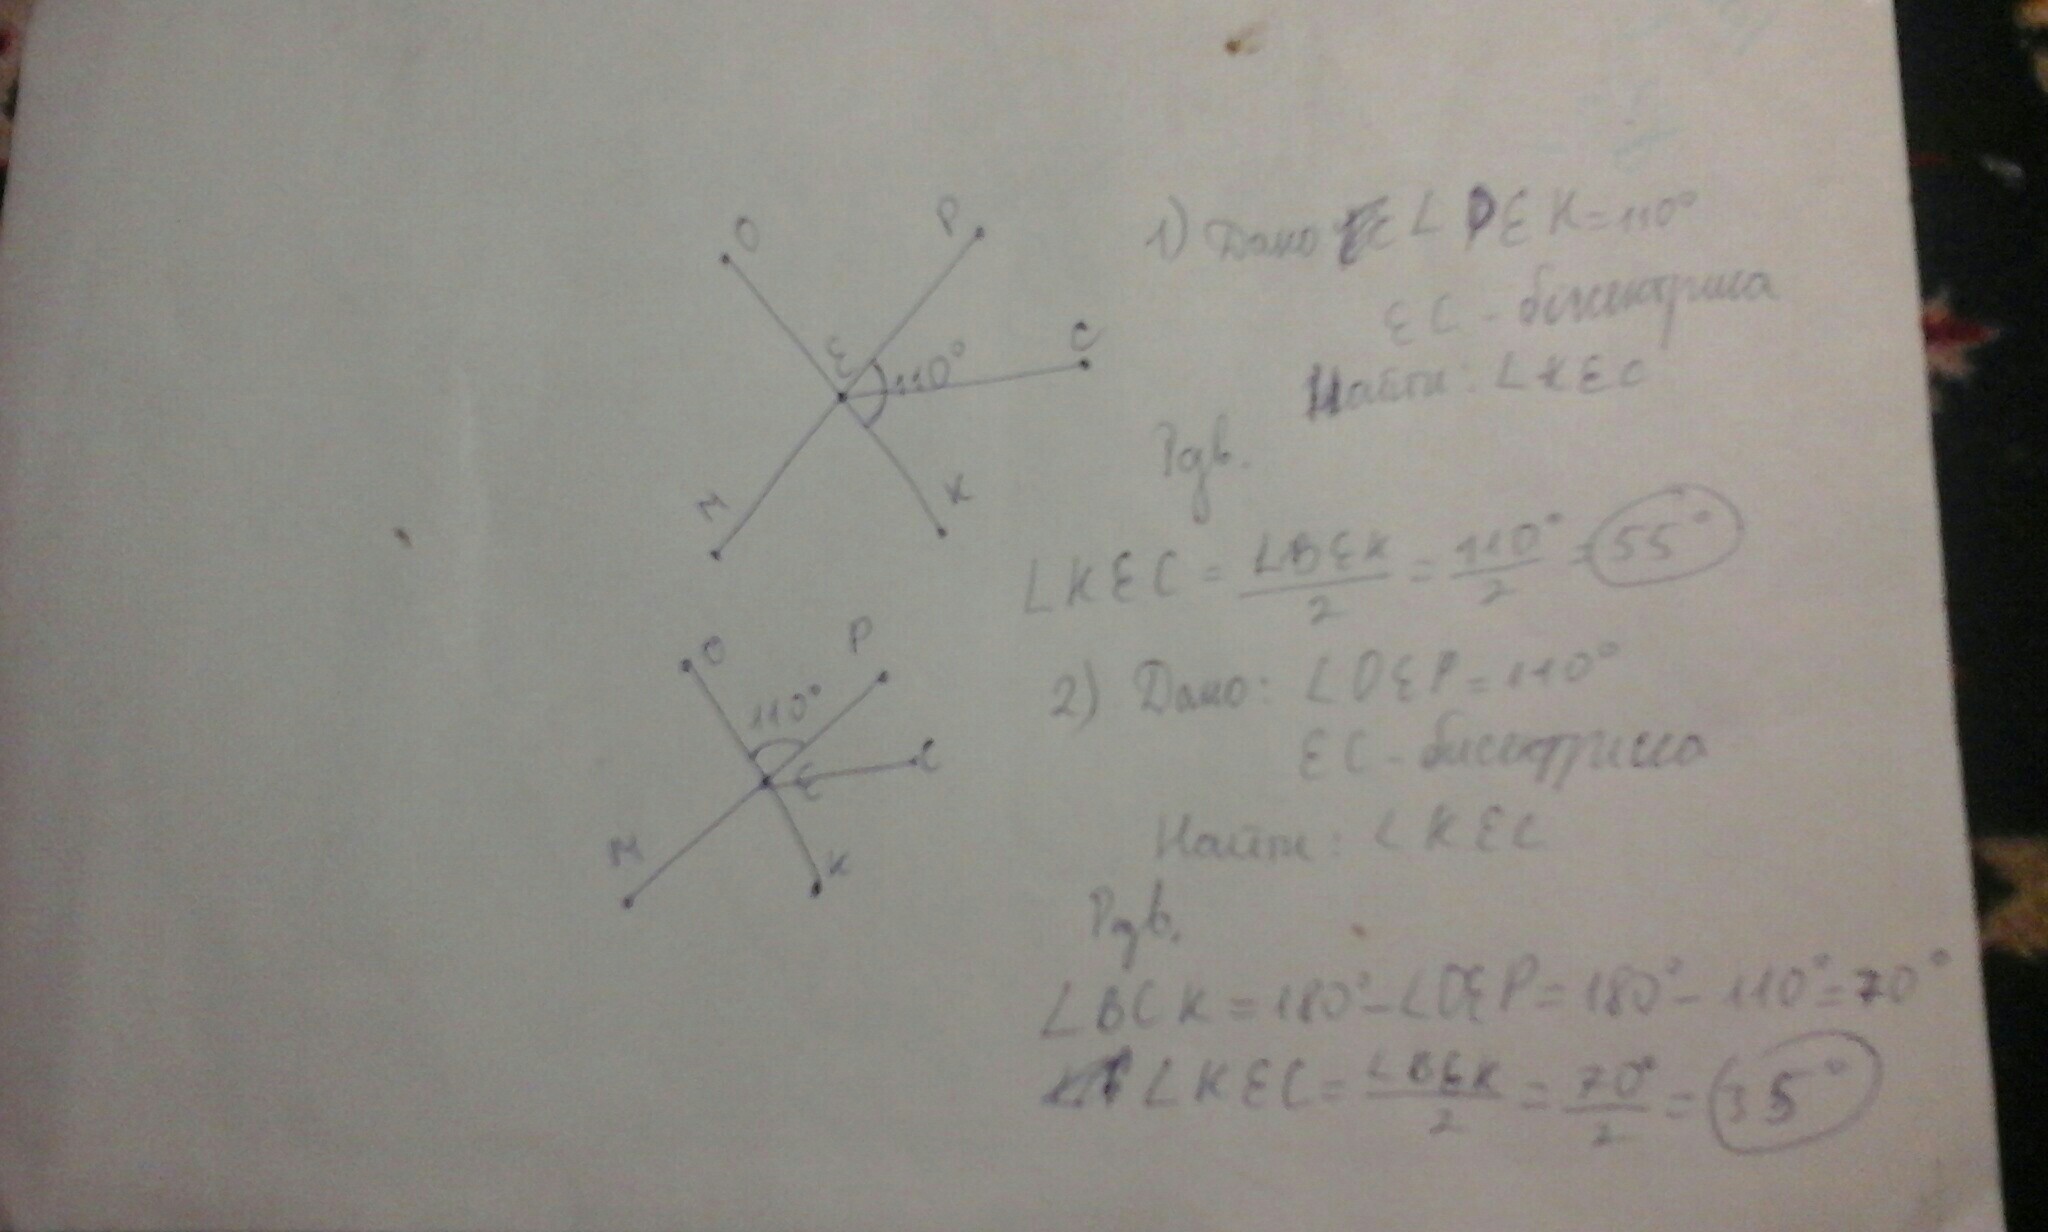 O
P
E
110°
C
M
K
1) Дано ∠PEK=110°
EC - биссектриса
Найти: ∠KEC
Рдв.
∠KEC = ∠BEK/2 = 110°/2 = 55°
O
P
110°
E
C
M
K
2) Дано: ∠OEP=110°
EC - бисектрисса
Найти: ∠KEC
Рдв.
∠BCK = 180° - ∠OEP = 180° - 110° = 70°
∠KEC = ∠BEK/2 = 70°/2 = 35°